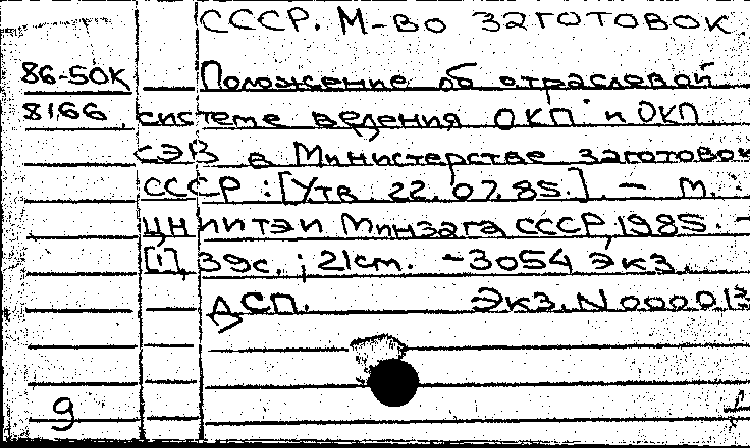 СССР. М-во заготовок.
86-50К Положение об отраслевой
8166 системе ведения ОКП и ОКП
СЭВ в Министерстве заготовок
СССР : [Утв. 22.07.85.]. – М. :
ЦНИИТЭИ Минзага СССР, 1985. –
[1], 39с. ; 21см. – 3054 экз.
ДСП. Экз. N 000013
9